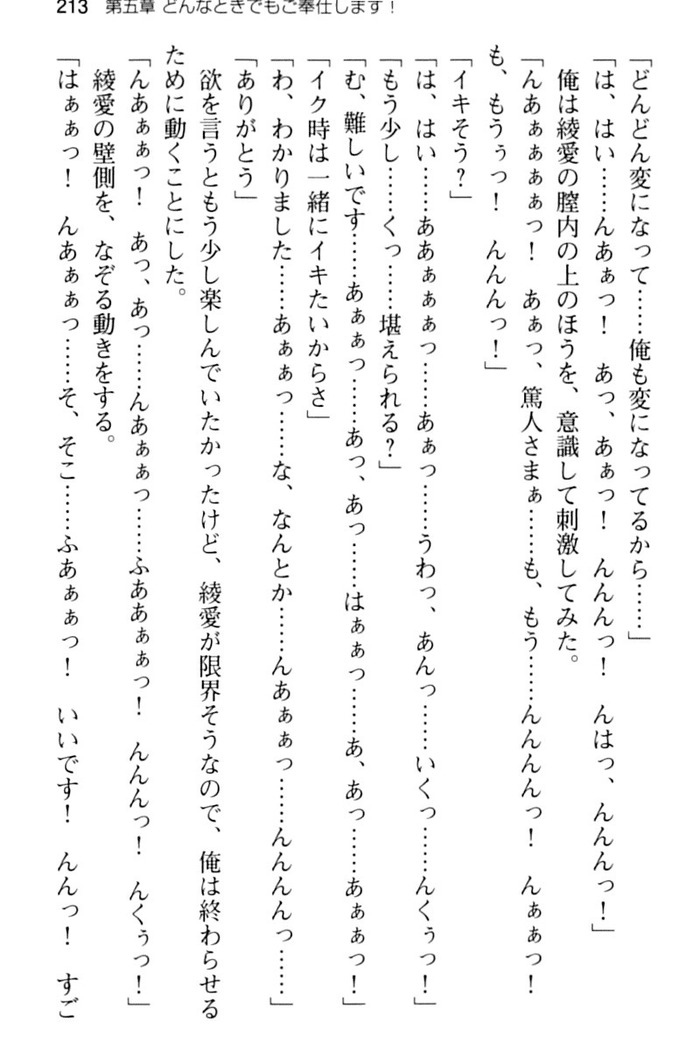 213　第五章 どんなときでもご奉仕します！
「どんどん変になって……俺も変になってるから……」
「は、はい……んあぁっ！　あっ、あぁっ！　んんんっ！　んはっ、んんんっ！」
俺は綾愛の膣内の上のほうを、意識して刺激してみた。
「んあぁぁぁぁっ！　あぁっ、篤人さまぁ……も、もう……んんんんっ！　んぁぁっ！
も、もうぅっ！　んんんっ！」
「イキそう？」
「は、はい……ああぁぁぁっ……あぁっ……うわっ、あんっ……いくっ……んくぅっ！」
「もう少し……くっ……堪えられる？」
「む、難しいです……あぁぁっ……あっ、あっ……はぁぁっ……あ、あっ……あぁぁっ！」
「イク時は一緒にイキたいからさ」
「わ、わかりました……あぁぁっ……な、なんとか……んあぁぁっ……んんんんっ……」
「ありがとう」
欲を言うともう少し楽しんでいたかったけど、綾愛が限界そうなので、俺は終わらせる
ために動くことにした。
「んあぁぁっ！　あっ、あっ……んあぁぁっ……ふああぁぁっ！　んんんっ！　んくぅっ！」
綾愛の壁側を、なぞる動きをする。
「はぁぁっ！　んあぁぁっ……そ、そこ……ふあぁぁっ！　いいです！　んんっ！　すご